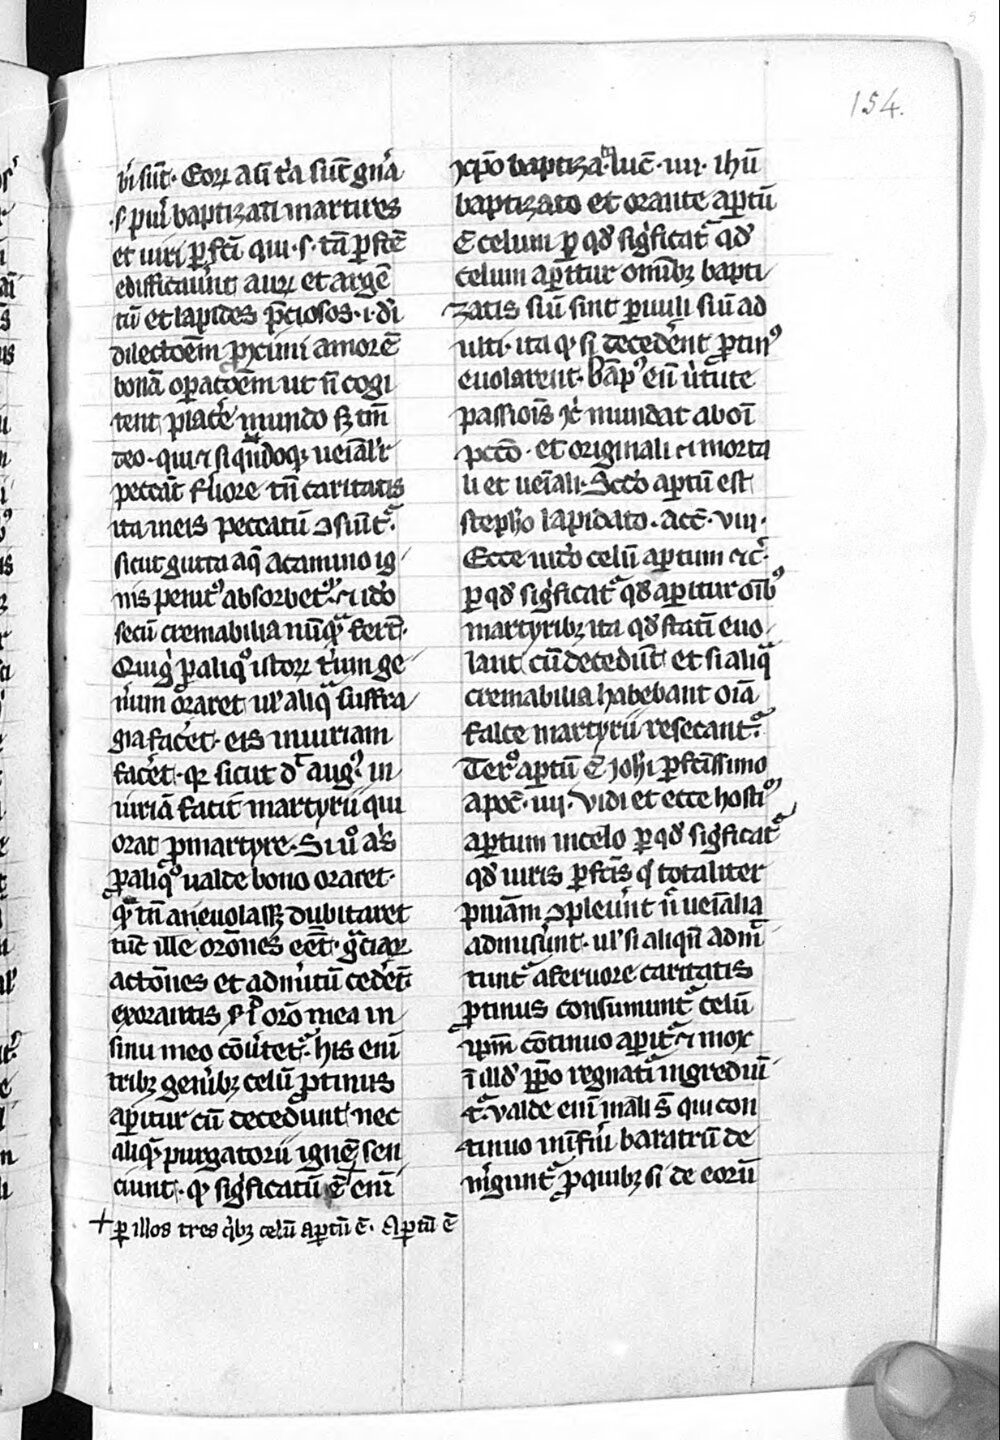 154.
bi sūt. Eoꝝ aūt tͥa sūt gn̄a
.s. puͥ baptizati martires
et uiri ꝑfc̄i qui .s. tā ꝑfc̄e
edifficaūnt auꝝ et argē
tū et lapides p̄ciosos .i. dī
dilectōem ꝓximi amorē
bonā oꝑatōem ut n̄ cogi
tent placͤe mundo sꝫ tm̄
deo. qui ⁊ si qn̄doqꝫ uenīalr̄
peccāt fͥuore tn̄ caritatis
ita in eis peccatū ↄsūitᷓ
sicut gutta aq̄ a camino ig
nis penitꝰ absorbetᷣ ⁊ ido
secū cremabilia nūqᷓ ferūt.
Qui gͦ ꝑ aliqͦ istoꝝ tͥum ge
nͥum oraret ul̓ aliqᷓ suffra
gia facet. eis iniuriam
facet. qꝛ sicut dͭ augꝰ in
iuriā facit martyrii qui
orat ꝓ martyre. Si ū aꝰs
ꝓ aliqͦ ualde bono oraret.
qͦ tn̄ an euolassꝫ dubitaret
tūc ille orōnes eēnt gᷓciaꝝ
actōnes et ad mītū cedent
exorantis s. ꝓ orō mea in
sinu meo cōutetᷣ. his enī
tribꝫ genībꝫ celū ꝓtinus
aꝑitur cū decedunt nec
aliqͣ purgatorii ignē sen
ciunt. qͦ sigͥficatū ē enī
+ ꝑ illos tres qͥbꝫ celū aꝑtū ē. Aꝑtū ē
xp̄o baptizaᵗᵒ luc̄. iii. ihū
baptizato et orante aꝑtū
ē celum ꝑ qd̄ sigͥficatᷣ qd̄
celum aꝑitur omībꝫ bapti
zatis siū sint ꝑuuli siū ad
ulti. ita qͦ si decedent ꝓtinꝰ
euolarent. bāpꝰ enī ūtute
passiōis xͥ mundat ab oī
pcc̄o. et originali ⁊ morta
li et uenīali. Scd̄o aꝑtū est
stepho lapidato. acc̄. viii.
Ecce uid̓o celū aꝑtum ⁊c̄.
ꝑ qd̄ sigͥficatᷣ qd̄ aꝑitur oībꝰ
martyribꝫ ita qd̄ statī euo
lant cū decedūt et si aliqᷓ
cremabilia habebant oīa
falce martyrii resecantᷣ.
Terͦ aꝑtū ē ioh̄i ꝑfctīssimo
apoc̄. iiij. vidi et ecce hostiū
aꝑtum in celo ꝑ qd̄ sigͥficatᷣ
qd̄ uiris ꝑfc̄is q̄ totaliter
pnīam ↄpleūnt n̄ uenīalia
admisūnt. ul̓ si aliqn̄ admͭ
tuntᷣ a feruore caritatis
ꝓtinus consumuntᷣ celū
ip̄m cōtinuo aꝑitᷣ ⁊ mox
ī illd̄ ꝑpͦo regnatī ingrediū
tᷣ. valde enī mali s̄ qui con
tinuo in īfͥnī baratrū de
mͥguntᷣ ꝓ quibꝫ si de eorū